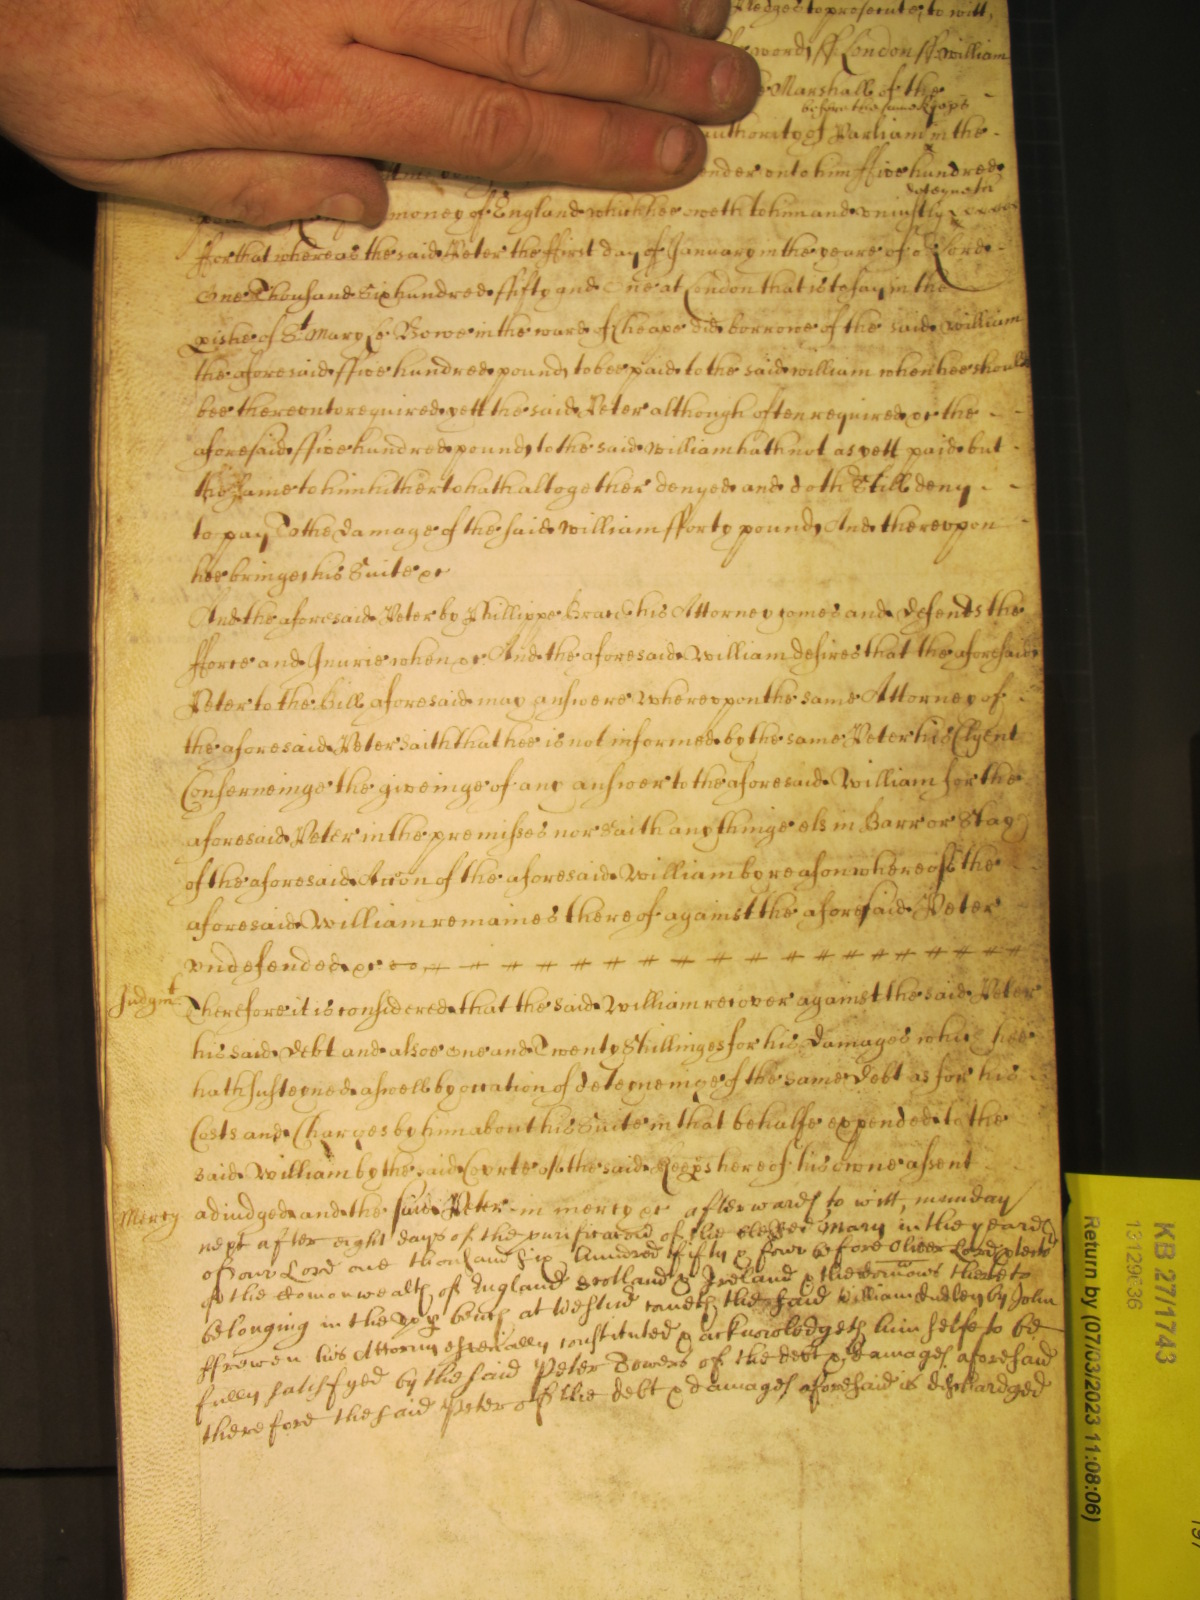 Pledges to prosecute, to witt,
word, ff London ff William
Marshall of the
before the same Keeps
authority of Parliamt in the
render unto him ffive hundred
deteyneth
money of England which hee oweth to him and uniustly
ffor that whereas the said Peter the ffirst day of January in the yeare of or Lord
One Thousand Six hundred ffifty and One at London that is to say in the
pishe of St Mary Le Bowe in the ward of Cheape did borrowe of the said William
the aforesaid ffive hundred pounds to bee paid to the said William when hee should
bee thereunto required yett the said Peter although often required &c the
aforesaid ffive hundred pounds to the said William hath not as yett paid but
the same to him hitherto hath altogether denyed and doth Still deny
to pay To the Damage of the said William fforty pounds And thereupon
hee bringes his Suite &c
And the aforesaid Peter by Phillippe his Attorney comes and defends the
fforce and Iniurie when &c And the aforesaid William desires that the aforesaid
Peter to the Bill aforesaid may answere whereupon the same Attorney of
the aforesaid Peter saith that hee is not informed by the same Peter his Clyent
Conserneinge the giveinge of any answer to the aforesaid William for the
aforesaid Peter in the premisses nor saith any thinge els in Barr or Stay
of the aforesaid Accon of the aforesaid William by reason whereof the
aforesaid William remaines thereof against the aforesaid Peter
undefended &c
Judgmt Therefore it is considered that the said William recover against the said Peter
his said Debt and alsoe One and Twenty Shillinges for his Damages which hee
hath susteyned aswell by occation of deteyneinge of the same Debt as for his
Costs and Charges by him about his Suite in that behalfe expended to the
said William by the said Courte of the said Keeps here of his owne assent
Mercy adiudged and the said Peter in mercy &c afterwards to witt, munday
next after eight days of the purificacon of the blessed Mary in the yeare
of our Lord one thousand six hundred fifty & four before Oliver Lord ptector
of the Comonwealth of England Scotland & Ireland & the Dominions thereto
belonging in the upp bench at Westmr cometh the said William Dudley by John
ffrewen his Attorny especially constituted & acknowledgeth him selfe to be
fully satisfyed by the said Peter Bowers of the debt & damages aforesaid
therefore the said Peter of the debt & damages aforesaid is dischardged
KB 27/1743
13129636
Return by (07/03/2023 11:08:06)